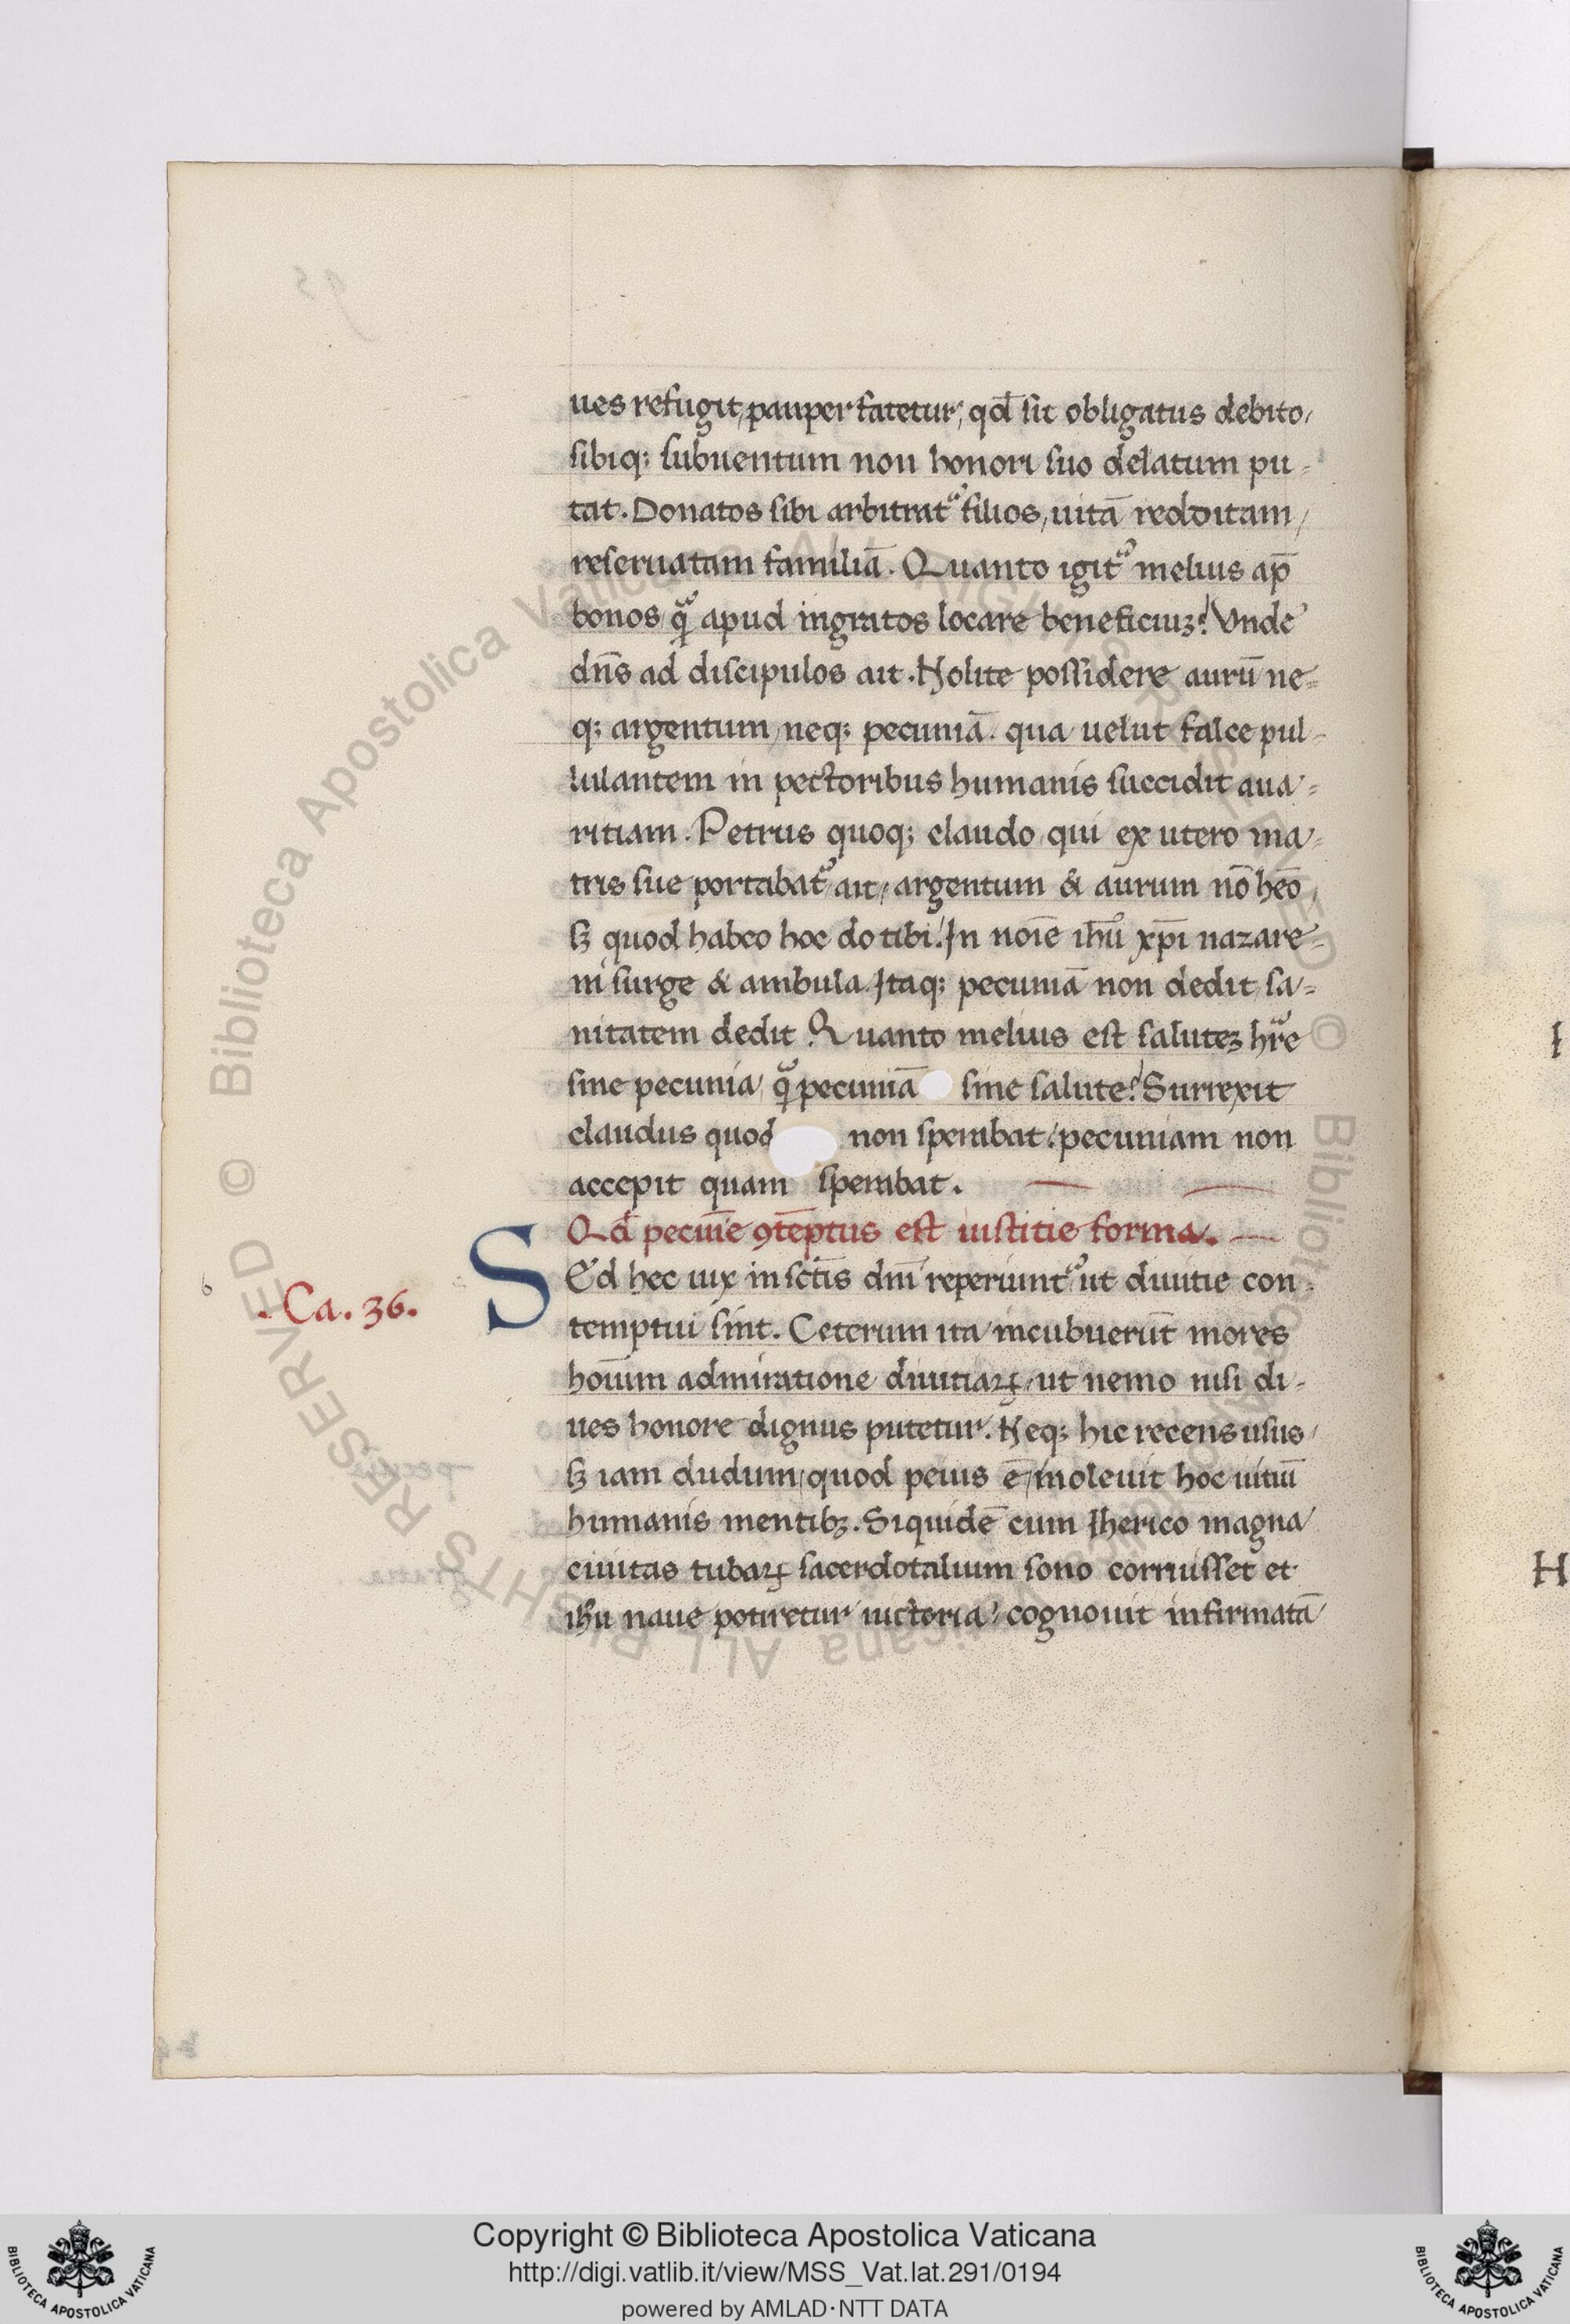 ues refugit, pauper fatetur; qd̄ sit obligatus debito,
sibiq; subuentum non honori suo delatum pu-
tat. Donatos sibi arbitrat᷑ filios, uitā redditam,
reseruatam familiā. Quanto igit᷑ melius ap̄
bonos q̄ apud ingratos locare beneficiuꝫ? Vnde
dn̄s ad discipulos ait. Nolite possidere aurū ne-
q; argentum, neq; pecuniā. qua uelut falce pul-
lulantem in pectoribus humanis succidit aua-
ritiam. Petrus quoq; claudo qui ex utero ma-
tris sue portabat᷑ ait, argentum & aurum nō hēo,
sꝫ quod habeo hoc do tibi. In noīe ihū xp̄i nazare-
ni surge & ambula. Itaq; pecuniā non dedit, sa-
nitatem dedit. Quanto melius est saluteꝫ hr̄e
sine pecunia, q̄ pecuniā sine salute? Surrexit
claudus quod non sperabat: pecuniam non
accepit quam sperabat.
Qd̄ pecuīe ꝯtēptus est iustitie forma.
. Ca. 36. SEd hec uix in sctīs dnī reperiunt᷑ ut diuitie con-
temptui sint. Ceterum ita incubuerūt mores
hoīum admiratione diuitiaꝝ, ut nemo nisi di-
ues honore dignus putetur. Neq; hic recens usus,
sꝫ iam dudum, quod peius ē, inoleuit hoc uitiū
humanis mentibꝫ. Siquidē cum Iherico magna
ciuitas tubaꝝ sacerdotalium sono corruisset et
ihū naue potiretur uictoria: cognouit infirmatā
Copyright © Biblioteca Apostolica Vaticana
http://digi.vatlib.it/view/MSS_Vat.lat.291/0194
powered by AMLAD·NTT DATA
BIBLIOTECA APOSTOLICA VATICANA
BIBLIOTECA APOSTOLICA VATICANA